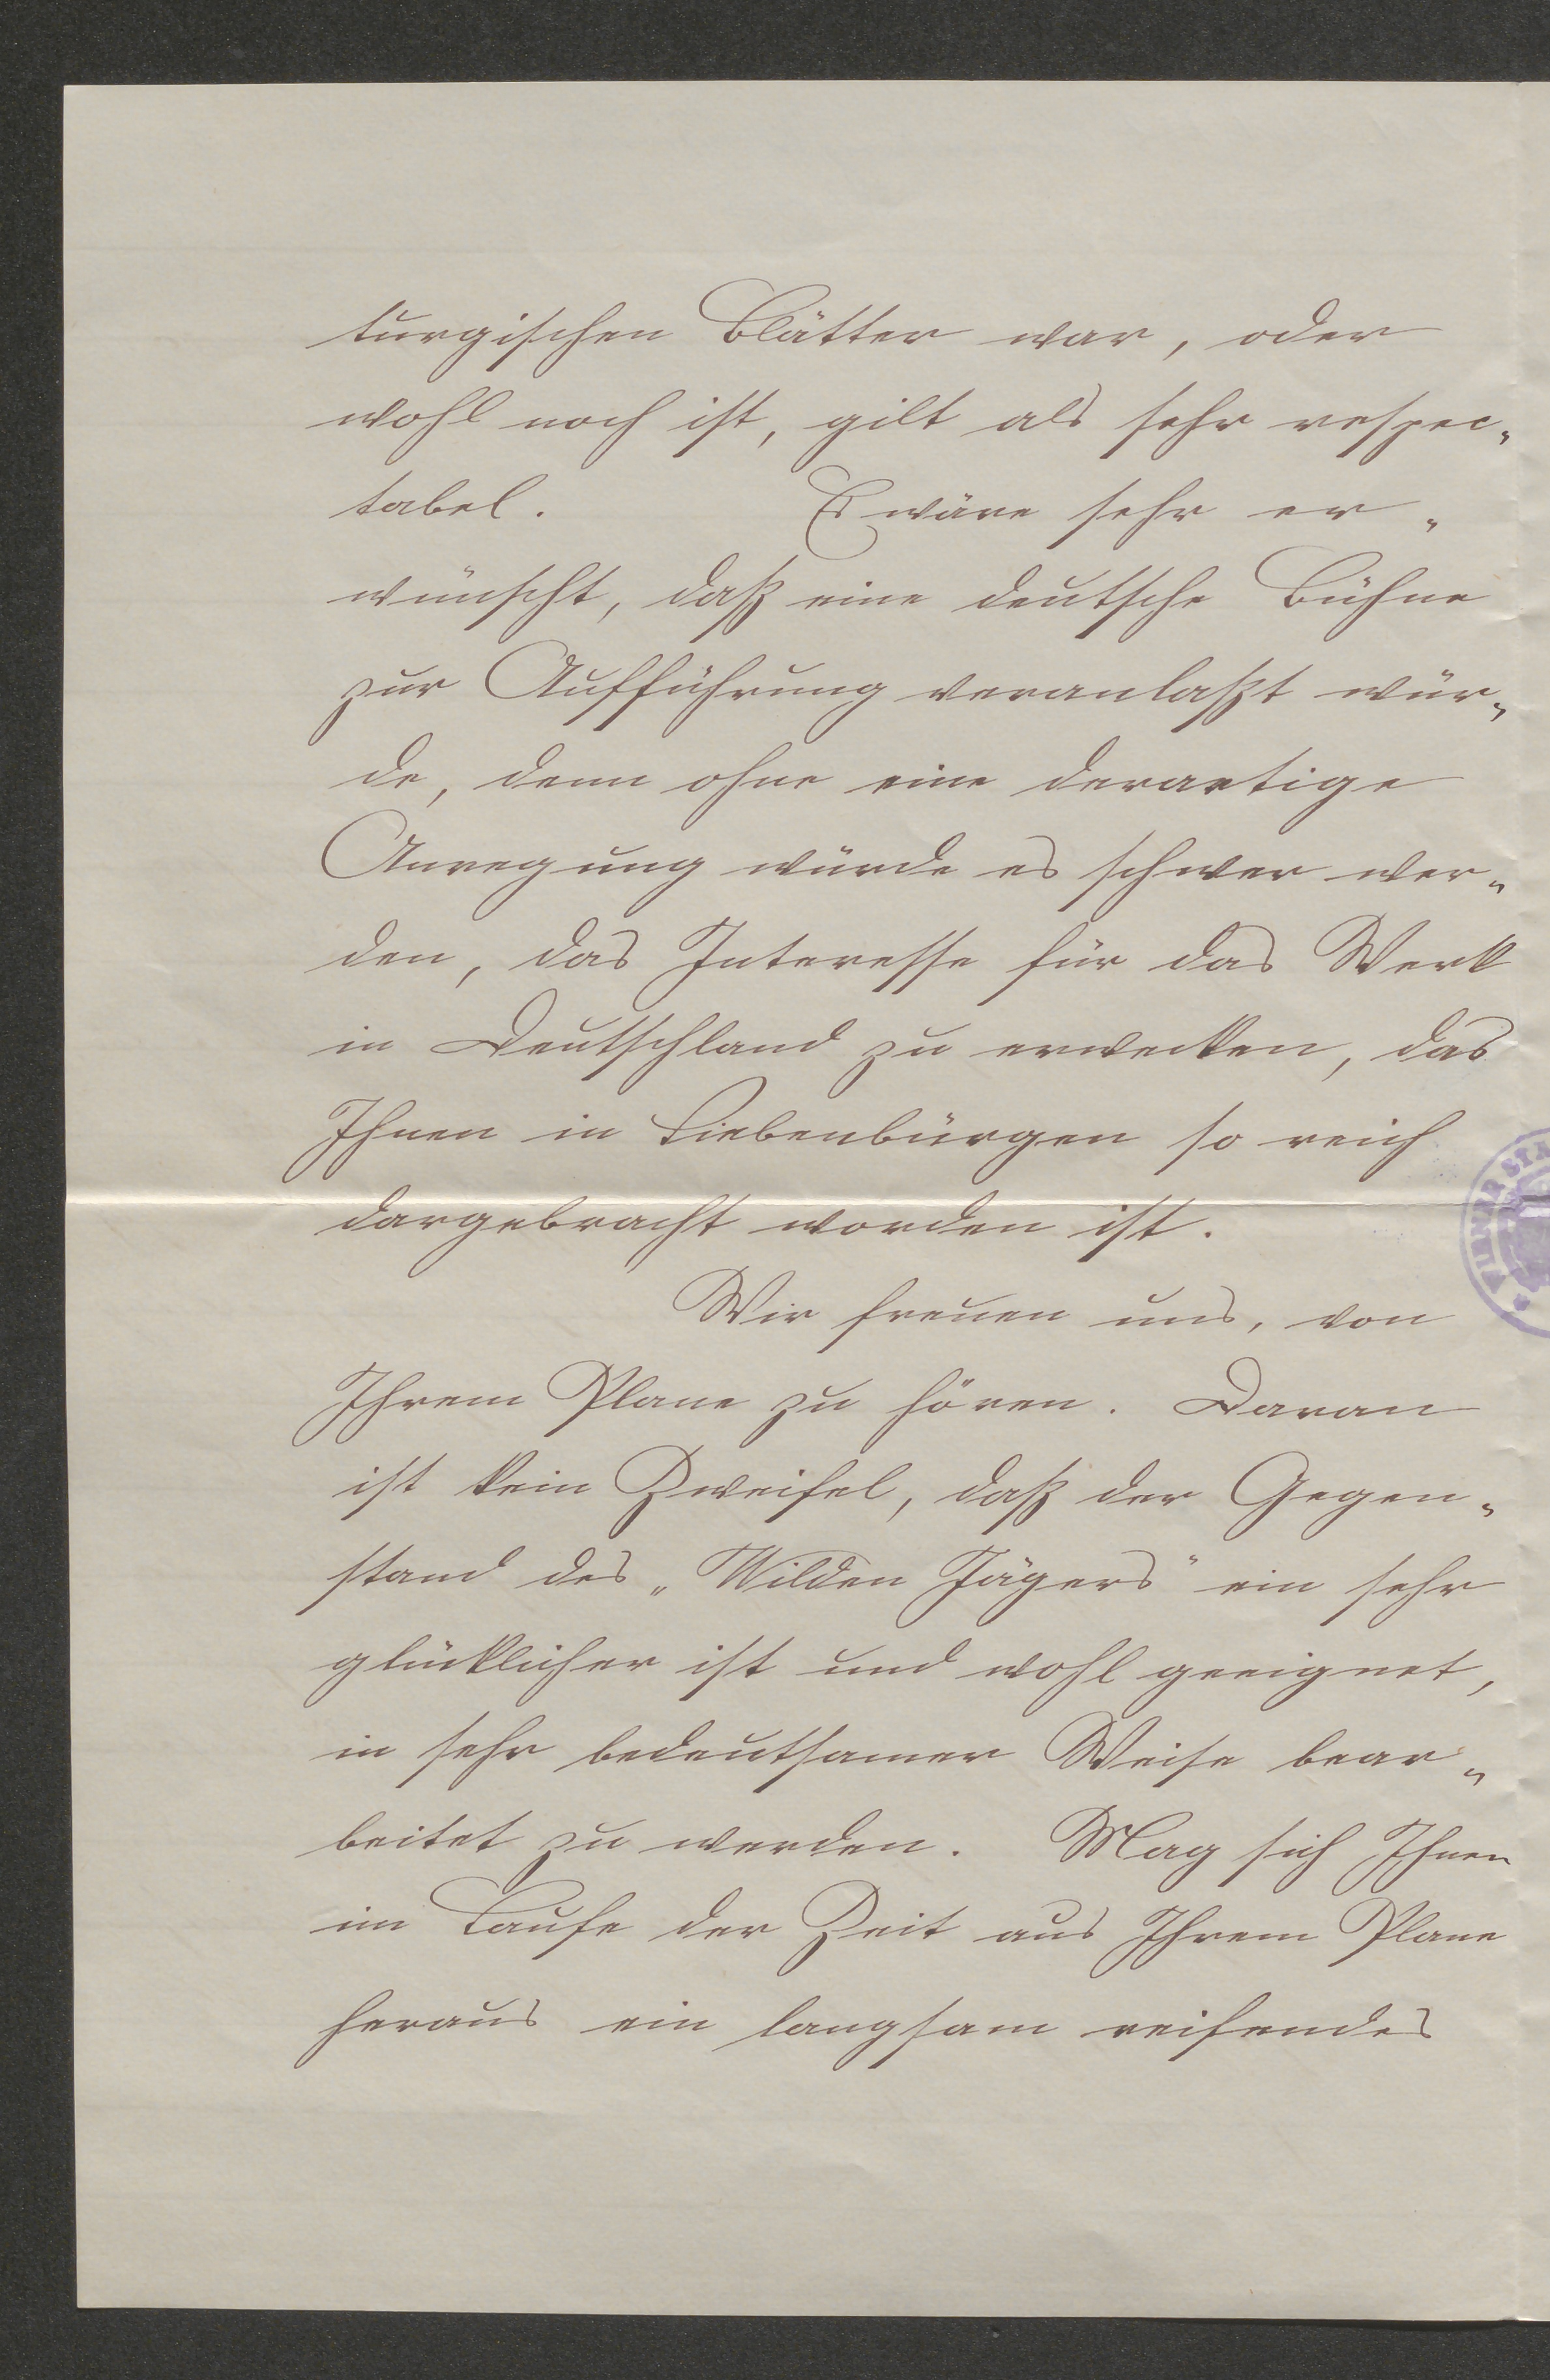 turgischen Blätter war, oder
wohl noch ist, gilt als sehr respec„
tabel. Es wäre sehr er„
wünscht, daß eine deutsche Bühne
zur Aufführung veranlaßt wür„
de, denn ohne eine derartige
Anregung würde es schwer wer„
den, das Interesse für das Werk
in Deutschland zu erwecken, das
Ihnen in Siebenbürgen so reich
dargebracht worden ist.
Wir freuen uns, von
Ihrem Plane zu hören. Daran
ist kein Zweifel, daß der Gegen„
stand des „Wilden Jägers" ein sehr
glücklicher ist und wohl geeignet,
in sehr bedeutsamer Weise bear„
beitet zu werden. Mag sich Ihnen
im Laufe der Zeit aus Ihrem Plane
heraus ein langsam reifendes